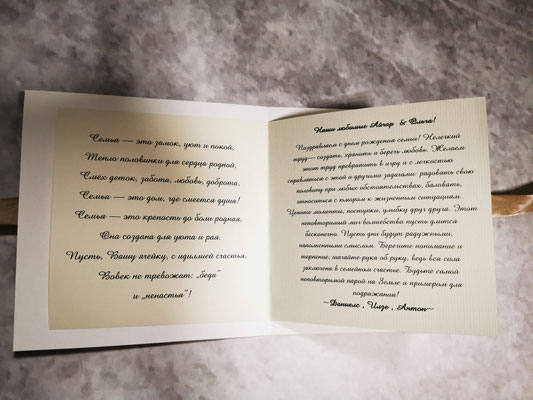 Семья — это замок, уют и покой,
Тепло половинки для сердца родной,
Смех деток, забота, любовь, доброта,
Семья — это дом, где смеется душа!
Семья — это крепость до боли родная,
Она создана для уюта и рая.
Пусть, Вашу ячейку, с идиллией счастья,
Вовек не тревожат: „беда”
и „ненастья”!
Наши любимые Айгар & Ольга!
Поздравляем с днем рождения семьи! Нелегкий
труд— создать, хранить и беречь любовь. Желаем
этот труд превратить в игру и с легкостью
справляться с этой и другими задачами: радовать свою
половину при любых обстоятельствах, баловать,
относиться с юмором к жизненным ситуациям.
Цените моменты, поступки, улыбку друг друга. Этот
неповторимый миг волшебства пусть длится
бесконечно. Пусть дни будут радужными,
наполненными смыслом. Берегите понимание и
терпение, шагайте рука об руку, ведь вся сила
заключена в семейном счастье. Будьте самой
неповторимой парой на Земле и примером для
подражания!
~Даниелс , Илзе , Антон~